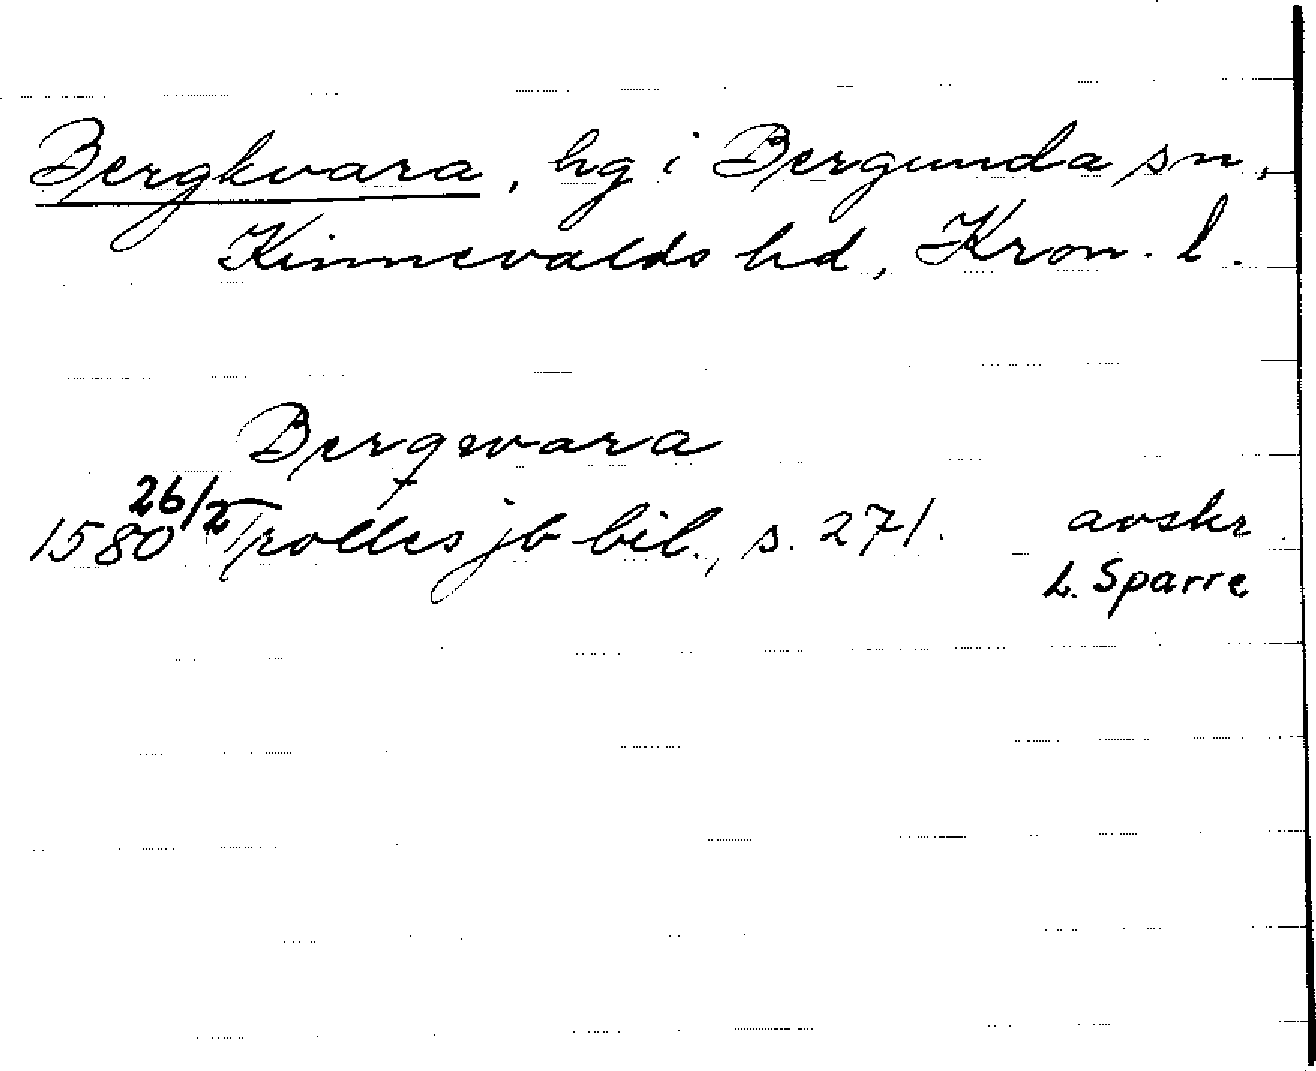 Bergkvara, hg i Bergunda sn,
Kinnevalds hd, Kron. l.
Bergqwara
1580 26/2 Trolles jb bil., s. 271. avskr
L. Sparre